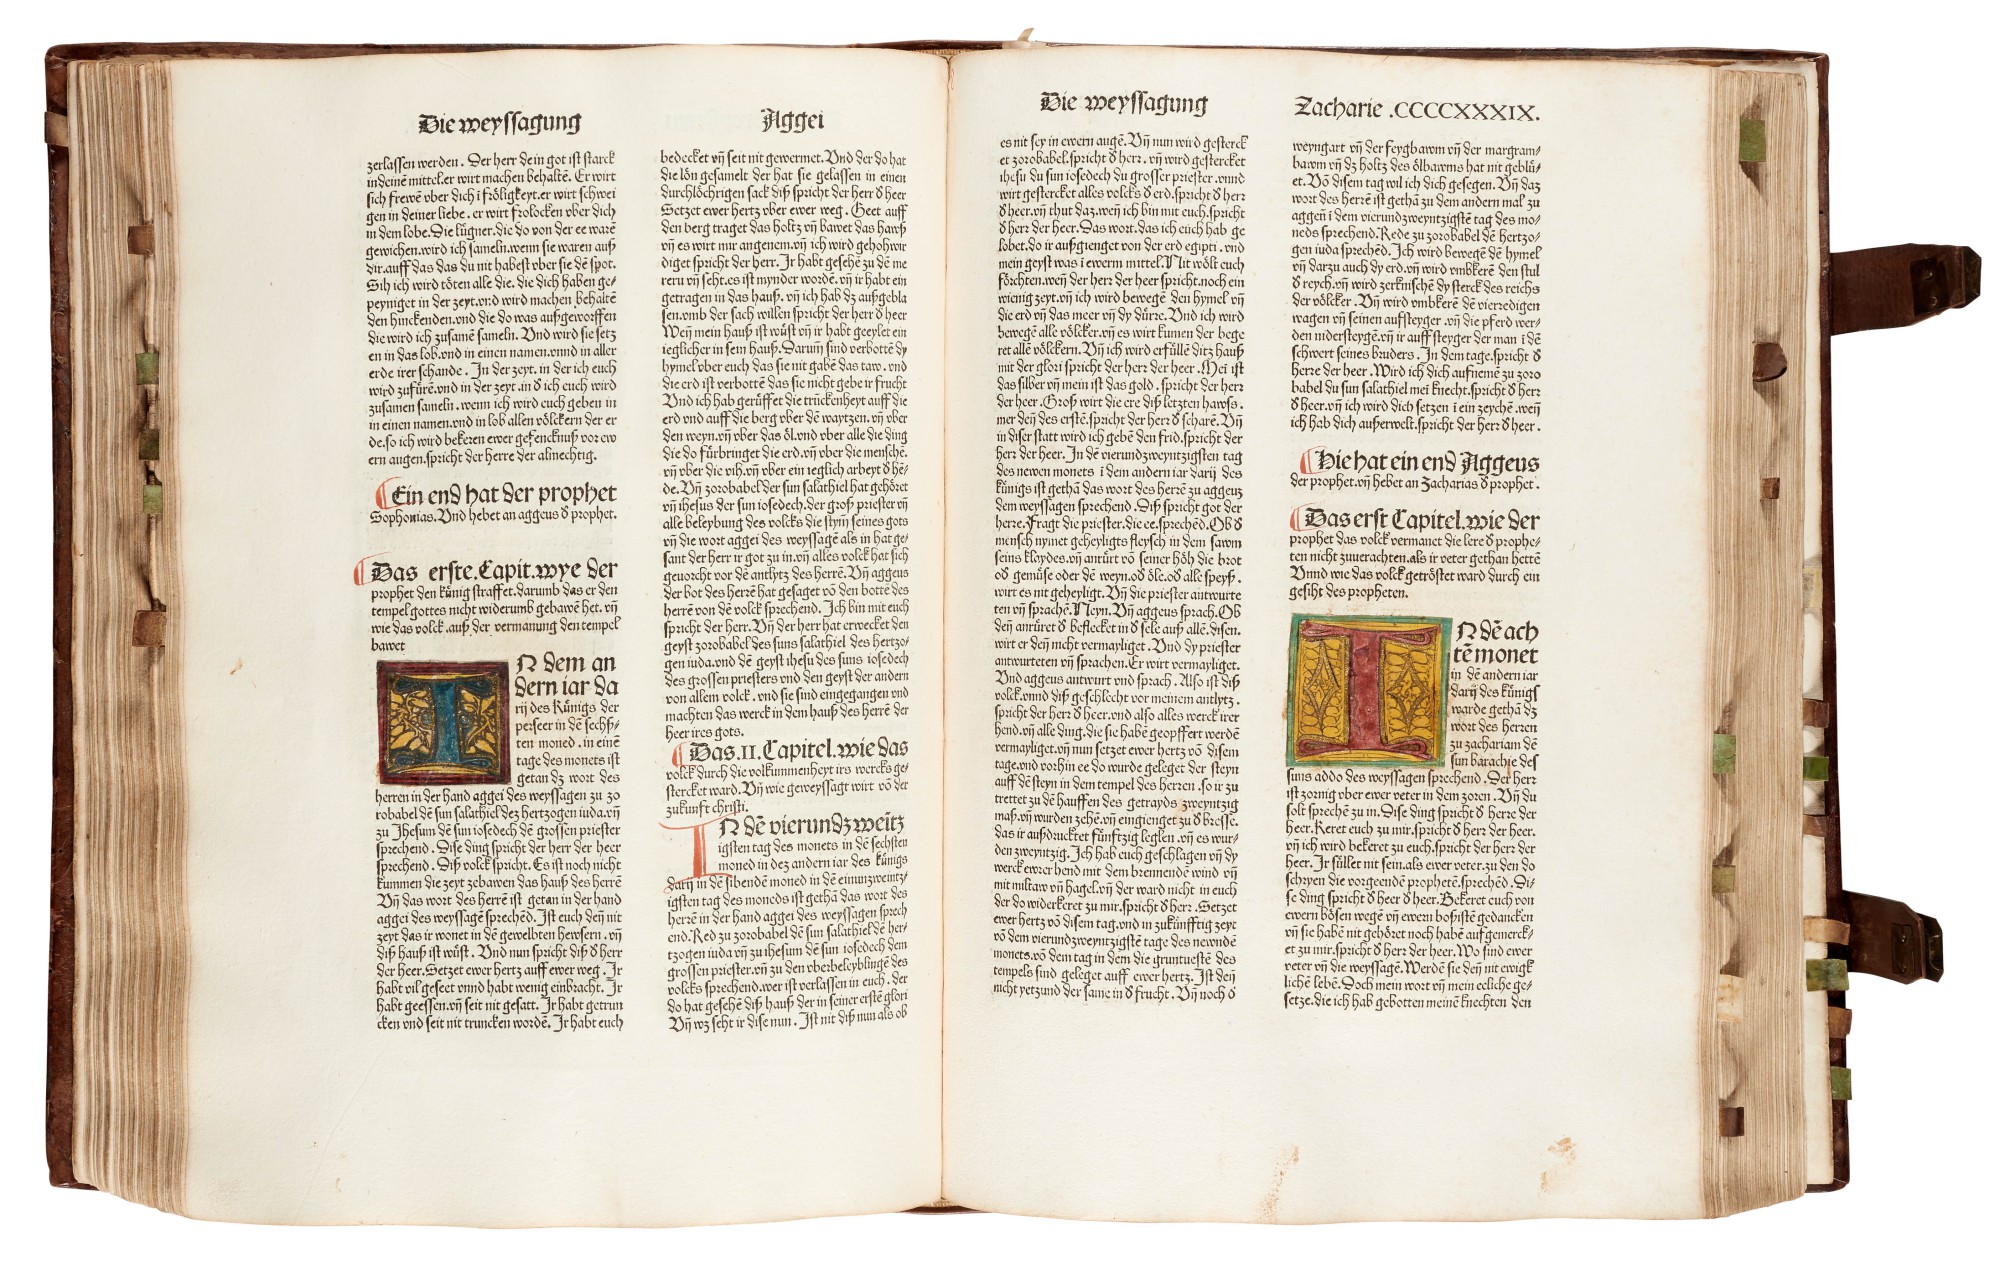 Die weyssagung
Aggei
zerlassen werden. Der herr dein got ist starck
in deinē mittel.er wirt machen behaltē. Er wirt
sich frewē vber dich ī frőligkeyt.er wirt schwei
gen in deiner liebe. er wirt frolocken vber dich
in dem lobe. Die lügner.die do von der ee warē
gewichen.wird ich sameln.wenn sie waren auß
dir.auff das das du nit habest vber sie dē spot.
Sih ich wird tőten alle die. die dich haben ge-
peyniget in der zeyt.vnd wird machen behaltē
den hinckenden.vnd die do was außgeworffen
die wird ich zusamē sameln. Vnd wird sie setz
en in das lob.vnd in einen namen.vnnd in aller
erde irer schande. In der zeyt. in der ich euch
wird zufürē.vnd in der zeyt.in đ ich euch wird
zusamen sameln. wenn ich wird euch geben in
in einen namen.vnd in lob allen vőlckern der er
de.so ich wird bekeren ewer gefencknuß vor ew
ern augen.spricht der herre der almechtig.
Ein end hat der prophet
Sophonias. Vnd hebet an aggeus đ prophet.
Das erste. Capit. wye der
prophet den künig straffet.darumb das er den
tempel gottes nicht widerumb gebawē het. vn̄
wie das volck .auß der vermanung den tempel
bawet
IN dem an
dern iar da
rij des Künigs der
perseer in dē sechß-
ten moned .in einē
tage des monets ist
getan dz wort des
herren in der hand aggei des weyssagen zu zo
robabel dē sun salathiel dez hertzogen iuda.vn̄
zu Jhesum dē sun iosedech dē grossen priester
sprechend . Dise ding spricht der herr der heer
sprechend. Diß volck spricht. Es ist noch nicht
kummen die zeyt zebawen das hauß des herrē
Vn̄ das wort des herrē ist getan in der hand
aggei des weyssagē sprechēd. Ist euch den̄ nit
zeyt das ir wonet in dē gewelbten hewsern .vn̄
diß hauß ist wüst. Vnd nun spricht diß đ herr
der heer. Setzet ewer hertz auff ewer weg . Ir
habt vil geseet vnnd habt wenig einbracht. Ir
habt geessen.vn̄ seit nit gesatt. Ir habt getrun
cken vnd seit nit truncken wordē. Ir habt euch
bedecket vn̄ seit nit gewermet. Vnd der do hat
die lőn gesamelt der hat sie gelassen in einen
durchlőchrigen sack diß spricht der herr đ heer
Setzet ewer hertz vber ewer weg. Geet auff
den berg traget das holtz vn̄ bawet das hawß
vn̄ es wirt mir angenem.vn̄ ich wird gehohwir
diget spricht der herr. Ir habt gesehē zu dē me
reru vn̄ seht.es ist mynder wordē. vn̄ ir habt ein
getragen in das hauß. vn̄ ich hab dz außgebla
sen.vmb der sach willen spricht der herr đ heer
Wen̄ mein hauß ist wüst vn̄ ir habt geeylet ein
ieglicher in sein hauß. Darum̄ sind verbottē dy
hymel vber euch das sie nit gabē das taw. vnd
die erd ist verbottē das sie nicht gebe ir frucht
Vnd ich hab gerüffet die trückenheyt auff die
erd vnd auff die berg vber dē waytzen. vn̄ vber
den weyn.vn̄ vber das ől.vnd vber alle die ding
die do fürbringet die erd.vn̄ vber die menschē.
vn̄ vber die vih.vn̄ vber ein ieglich arbeyt đ hē-
de. Vn̄ zorobabel der sun salathiel hat gehőret
vn̄ ihesus der sun iosedech.der groß priester vn̄
alle beleybung des volcks die stym̄ seines gots
vn̄ die wort aggei des weyssagē als in hat ge-
sant der herr ir got zu in.vn̄ alles volck hat sich
geuorcht vor dē antlytz des herrē. Vn̄ aggeus
der bot des herrē hat gesaget vō den bottē des
herrē von dē volck sprechend. Ich bin mit euch
spricht der herr. Vn̄ der herr hat erwecket den
geyst zorobabel des suns salathiel des hertzo-
gen iuda.vnd dē geyst ihesu des suns iosedech
des grossen priesters vnd den geyst der andern
von allem volck .vnd sie sind eingegangen vnd
machten das werck in dem hauß des herrē der
heer ires gots.
Das .II. Capitel. wie das
volck durch die volkummenheyt irs wercks ge-
stercket ward. Vn̄ wie geweyssagt wirt vō der
zukunft christi.
IN dē vierundzweītz
igsten tag des monets in dē sechsten
moned in dez andern iar des künigs
darij in dē sibendē moned in dē einunzweintz-
igsten tag des moneds ist gethā das wort des
herrē in der hand aggei des weyssagen sprech
end. Red zu zorobabel dē sun salathiel dē her-
tzogen iuda vn̄ zu ihesum dē sun iosedech dem
grossen priester.vn̄ zu den vberbeleyblingē des
volcks sprechend.wer ist verlassen in euch. der
do hat gesehē diß hauß der in seiner erstē glori
Vn̄ wz seht ir dise nun. Ist nit diß nun als ob
Die weyssagung
Zacharie .CCCCXXXIX.
es nit sey in ewern augē. Vn̄ nun wird gesterck
et zorobabel.spricht đ herr. vn̄ wird gestercket
ihesu du sun iosedech du grosser priester.vnnd
wirt gestercket alles volck đ erd.spricht đ herr
đ heer.vn̄ thut daz.wen̄ ich bin mit euch.spricht
đ herr der heer. Das wort.das ich euch hab ge
lobet.do ir außgienget von der erd egipti .vnd
mein geyst was ī ewerm mittel. Nit wőlt euch
főrchten.wen̄ der herr der heer spricht.noch ein
wienig zeyt.vn̄ ich wird bewegē den hymel vn̄
die erd vn̄ das meer vn̄ dy dürre. Vnd ich wird
bewegē alle vőlcker.vn̄ es wirt kumen der bege
ret allē vőlckern. Vn̄ ich wird erfüllē ditz hauß
mit der glori spricht der herr der heer. Meī ist
das silber vn̄ mein ist das gold . spricht der herr
der heer. Groß wirt die ere diß letzten hawß.
mer den̄ des erstē.spricht der herr đ scharē. Vn̄
in diser statt wird ich gebē den frid.spricht der
herr der heer. In dē vierundzweyntzigsten tag
des newen monets ī dem andern iar darij des
künigs ist gethā das wort des herrē zu aggeuz
dem weyssagen sprechend. Diß spricht got der
herre. Fragt die priester.die ee.sprechēd. Ob đ
mensch nymet geheyligts fleysch in dem sawm
seins klaydes.vn̄ anrürt vō seiner hőh die brot
oď gemüse oder dē weyn.oď őle.oď alle speyß.
wirt es nit geheyligt. Vn̄ die priester antwurte
ten vn̄ sprachē. Neyn. Vn̄ aggeus sprach. Ob
den̄ anrüret đ beflecket in đ sele auß allē.disen.
wirt er den̄ nicht vermayliget. Vnd dy priester
antwurteten vn̄ sprachen. Er wirt vermayliget.
Vnd aggeus antwurt vnd sprach. Also ist diß
volck.vnnd diß geschlecht vor meinem antlytz.
spricht der herr đ heer.vnd also alles werck irer
hend.vn̄ alle ding.die sie habē geopffert werdē
vermayliget.vn̄ nun setzet ewer hertz vō disem
tage.vnd vorhin ee do wurde geleget der steyn
auff dē steyn in dem tempel des herren .so ir zu
trettet zu dē hauffen des getrayds zweyntzig
maß.vn̄ wurden zehē.vn̄ eingienget zu đ bresse.
das ir außdrucktet fünftzig leglen .vn̄ es wur-
den zweyntzig. Ich hab euch geschlagen vn̄ dy
werck ewrer hend mit dem brennendē wind vn̄
mit miltaw vn̄ hagel.vn̄ der ward nicht in euch
der do widerkeret zu mir.spricht đ herr. Setzet
ewer hertz vō disem tag.vnd in zukünfftig zeyt
vō dem vierundzweyntzigstē tage des newndē
monets.vō dem tag in dem die gruntueste des
tempels sind geleget auff ewer hertz. Ist den̄
nicht yetzund der same in đ frucht. Vn̄ noch đ
weyngart vn̄ der feygbawm vn̄ der margram-
bawm vn̄ dz holtz des őlbawms hat nit geblü-
et. Vō disem tag wil ich dich gesegen. Vn̄ daz
wort des herrē ist gethā zu dem andern mal zu
aggen ī dem vierundzweyntzigstē tag des mo-
neds sprechend. Rede zu zorobabel dē hertzo-
gen iuda sprechēd. Ich wird bewegē dē hymel
vn̄ darzu auch dy erd.vn̄ wird vmbkerē den stul
đ reych.vn̄ wird zerknischē dy sterck des reichs
der vőlcker. Vn̄ wird vmbkerē dē vierredigen
wagen vn̄ seinen aufsteyger .vn̄ die pferd wer-
den nidersteygē.vn̄ ir auffsteyger der man ī dē
schwert seines bruders. In dem tage.spricht đ
herre der heer. Wird ich dich aufnemē zu zoro
babel du sun salathiel meī knecht.spricht đ herr
đ heer.vn̄ ich wird dich setzen ī ein zeychē.wen̄
ich hab dich außerwelt.spricht der herr đ heer.
Hie hat ein end Aggeus
der prophet.vn̄ hebet an Zacharias đ prophet.
Das erst Capitel.wie der
prophet das volck vermanet die lere đ prophe-
ten nicht zuuerachten.als ir veter gethan hettē
Vnnd wie das volck getrőstet ward durch ein
gesiht des propheten.
IN dē ach
tē monet
in dē andern iar
darij des künigs
warde gethā dz
wort des herren
zu zachariam dē
sun barachie des
suns addo des weyssagen sprechend. Der herr
ist zornig vber ewer veter in dem zoren . Vn̄ du
solt sprechē zu in. Dise ding spricht đ herre der
heer. Keret euch zu mir.spricht đ herr der heer.
vn̄ ich wird bekeret zu euch.spricht der herr der
heer. Ir süllet nit sein.als ewer veter.zu den do
schryen die vorgeendē prophetē.sprechēd. Di-
se ding spricht đ heer đ heer. Bekeret euch von
ewern bősen wegē vn̄ ewern boßistē gedancken
vn̄ sie habē nit gehőret noch habē aufgemerck-
et zu mir.spricht đ herr der heer. Wo sind ewer
veter vn̄ die weyssagē. Werdē sie den̄ nit ewigk
lichē lebē. Doch mein wort vn̄ mein eeliche ge-
setze.die ich hab gebotten meinē knechten den